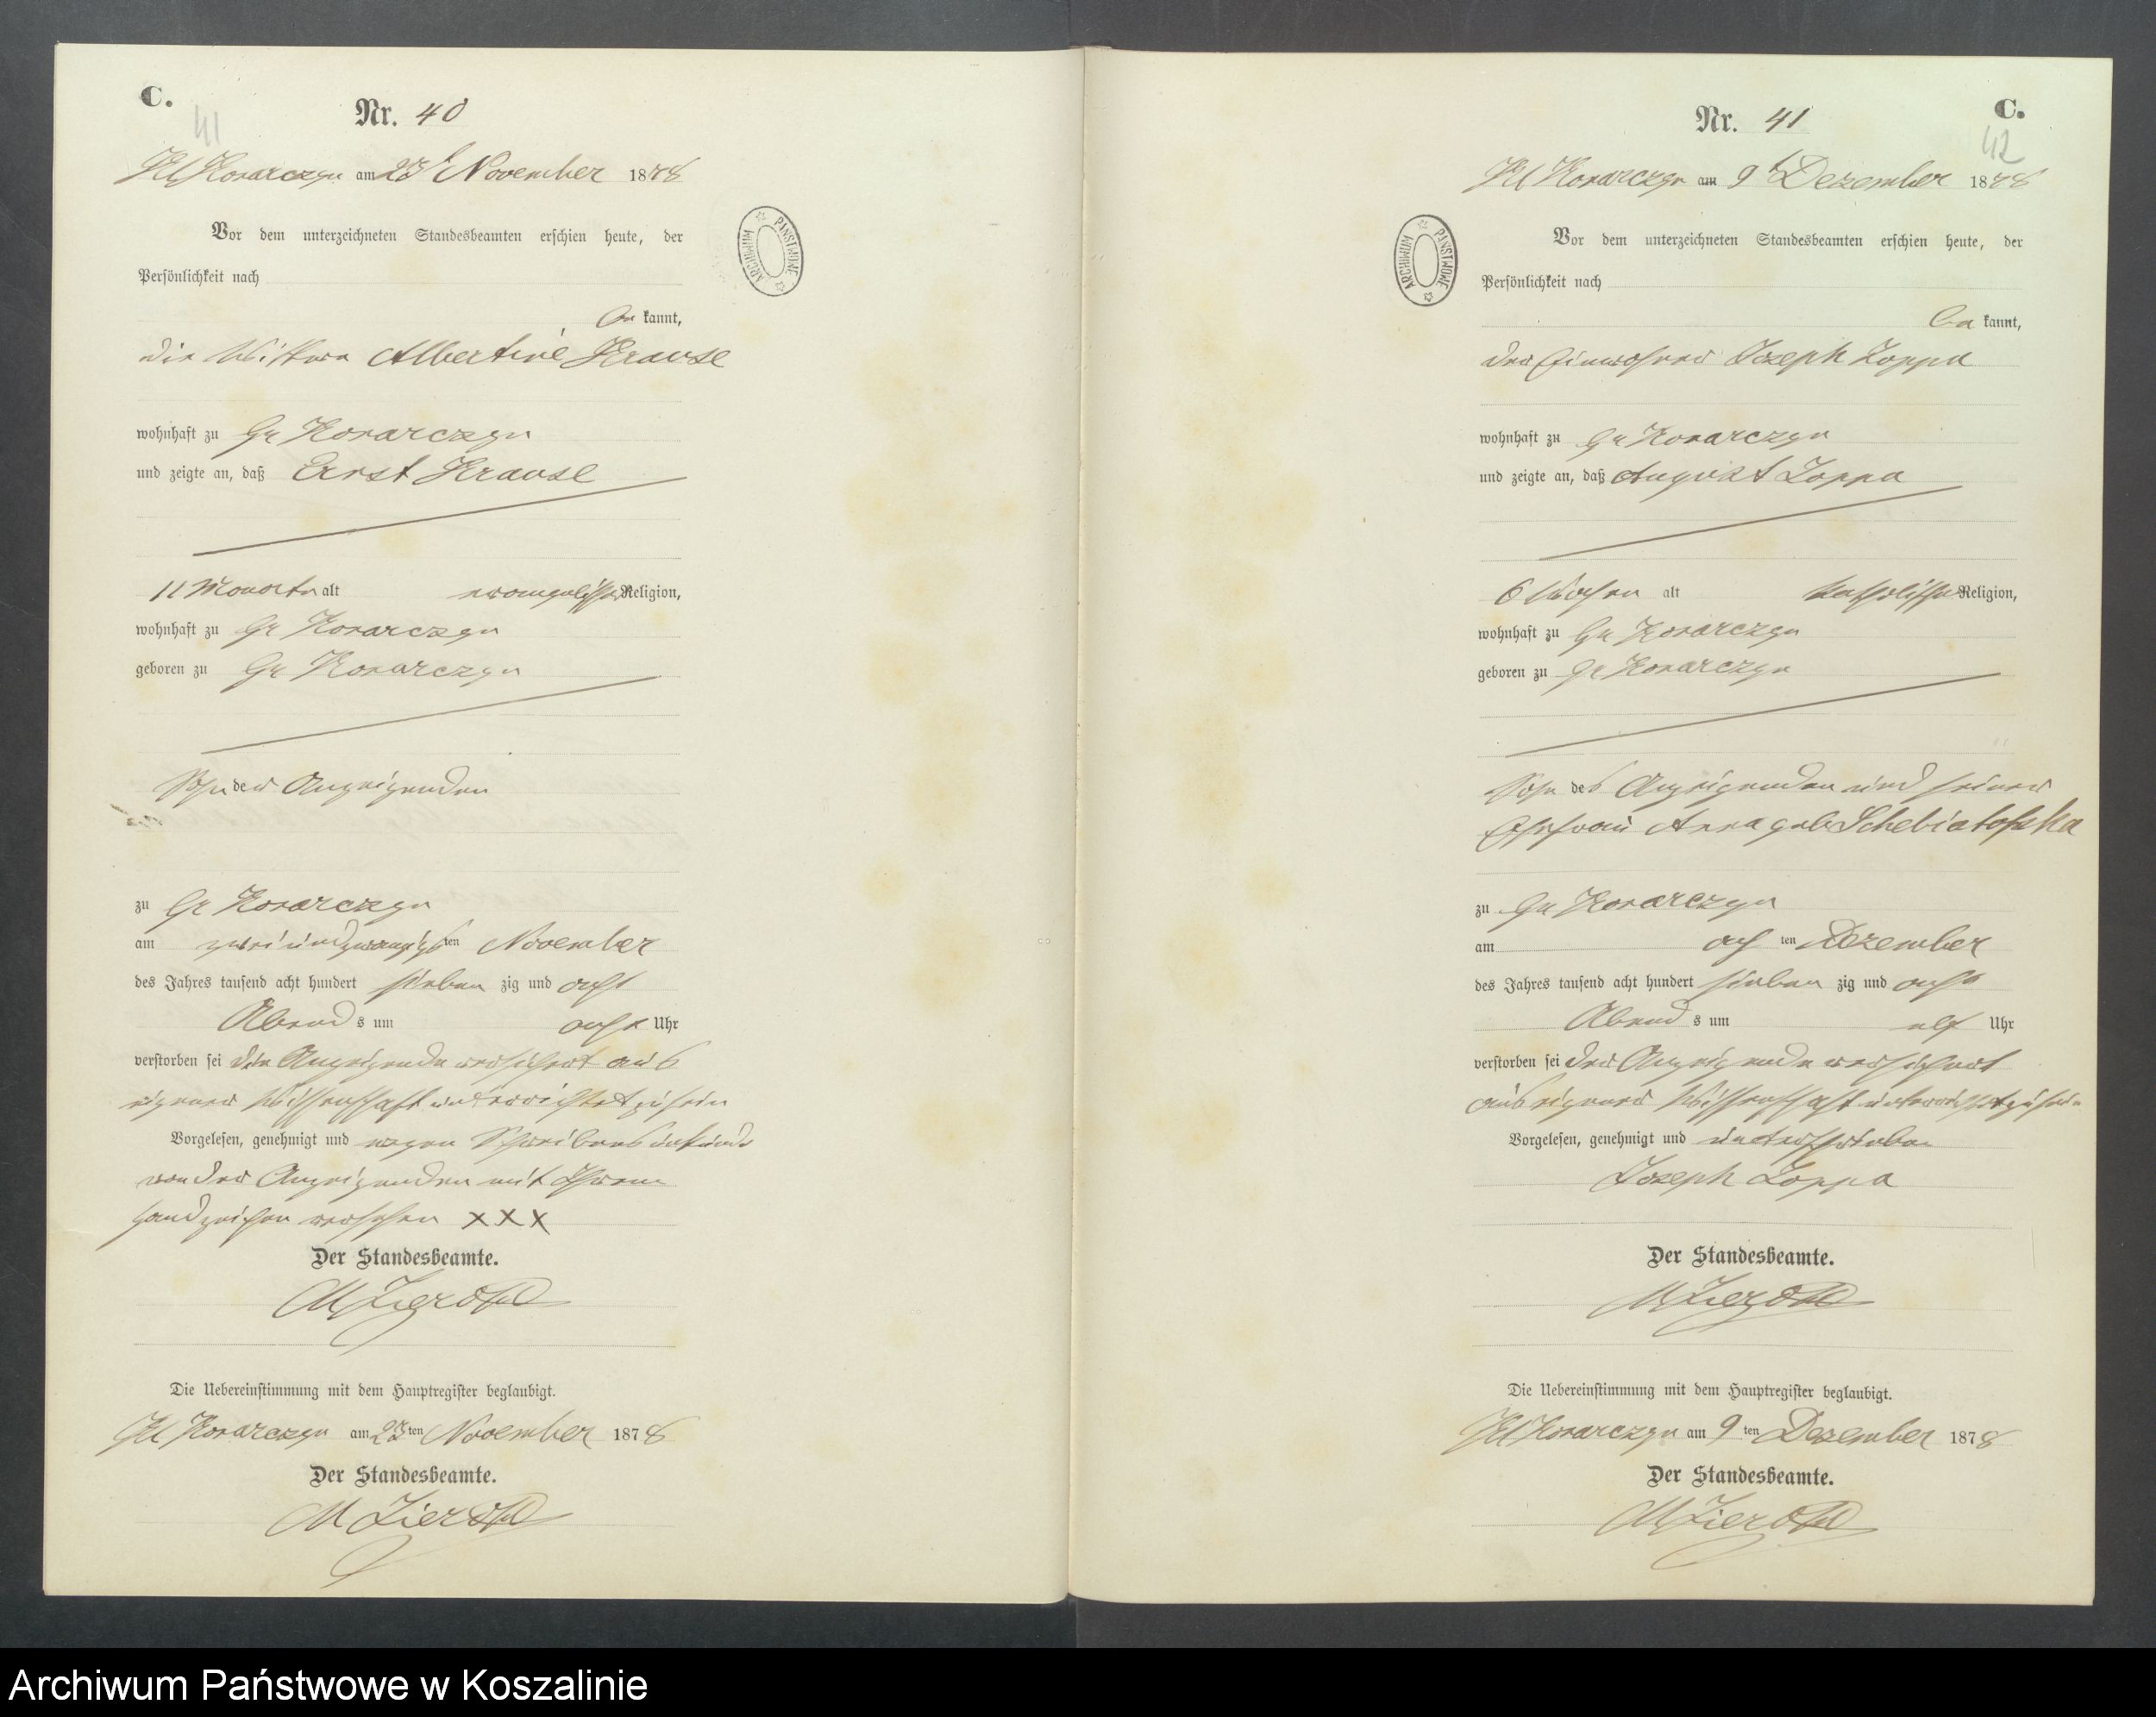 C.
41
Nr. 40
Kl Konarczyn am 23t November 1878
Vor dem unterzeichneten Standesbeamten erschien heute, der
Persönlichkeit nach
be kannt,
die Wittwe Albertine Krause
wohnhaft zu Gr Konarczyn
und zeigte an, daß Ernst Krause
11 Monate alt evangelischer Religion,
wohnhaft zu Gr Konarczyn
geboren zu Gr Konarczyn
Sohn der Anzeigenden
zu Gr Konarczyn
am zweiundzwanzigsten November
des Jahres tausend acht hundert sieben zig und acht
Abend s um acht Uhr
verstorben sei die Anzeigende versichert aus
eigener Wissenschaft unterrichtet zu sein
Vorgelesen, genehmigt und wegen Schreibensunkunde
von der Anzeigenden mit Ihrem
Handzeichen versehen XXX
Der Standesbeamte.
M Zieroth
Die Uebereinstimmung mit dem Hauptregister beglaubigt.
Kl Konarczyn am 23ten November 1878
Der Standesbeamte.
M Zieroth
ARCHIWUM PAŃSTWOWE
Nr. 41
C.
42
Kl Konarczyn am 9t Dezember 1878
Vor dem unterzeichneten Standesbeamten erschien heute, der
Persönlichkeit nach
be kannt,
der Einwohner Joseph Zoppa
wohnhaft zu Gr Konarczyn
und zeigte an, daß August Zoppa
6 Wochen alt katholischer Religion,
wohnhaft zu Gr Konarczyn
geboren zu Gr Konarczyn
Sohn des Anzeigenden und seiner
Ehefrau Anna geb
zu Gr Konarczyn
am ach ten Dezember
des Jahres tausend acht hundert sieben zig und acht
Abend s um elf Uhr
verstorben sei der Anzeigende versichert
aus eigener Wissenschaft unterrichtet zu sein
Vorgelesen, genehmigt und unterschrieben
Joseph Zoppa
Der Standesbeamte.
M Zieroth
Die Uebereinstimmung mit dem Hauptregister beglaubigt.
Kl Konarczyn am 9ten Dezember 1878
Der Standesbeamte.
M Zieroth
ARCHIWUM PAŃSTWOWE
Archiwum Państwowe w Koszalinie